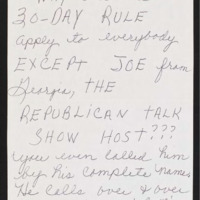 30-DAY RULE
apply to everybody
EXCEPT JOE from
Georgia, THE
REPUBLICAN TALK
SHOW HOST???
you even called him
by his complete names
He calls over & over